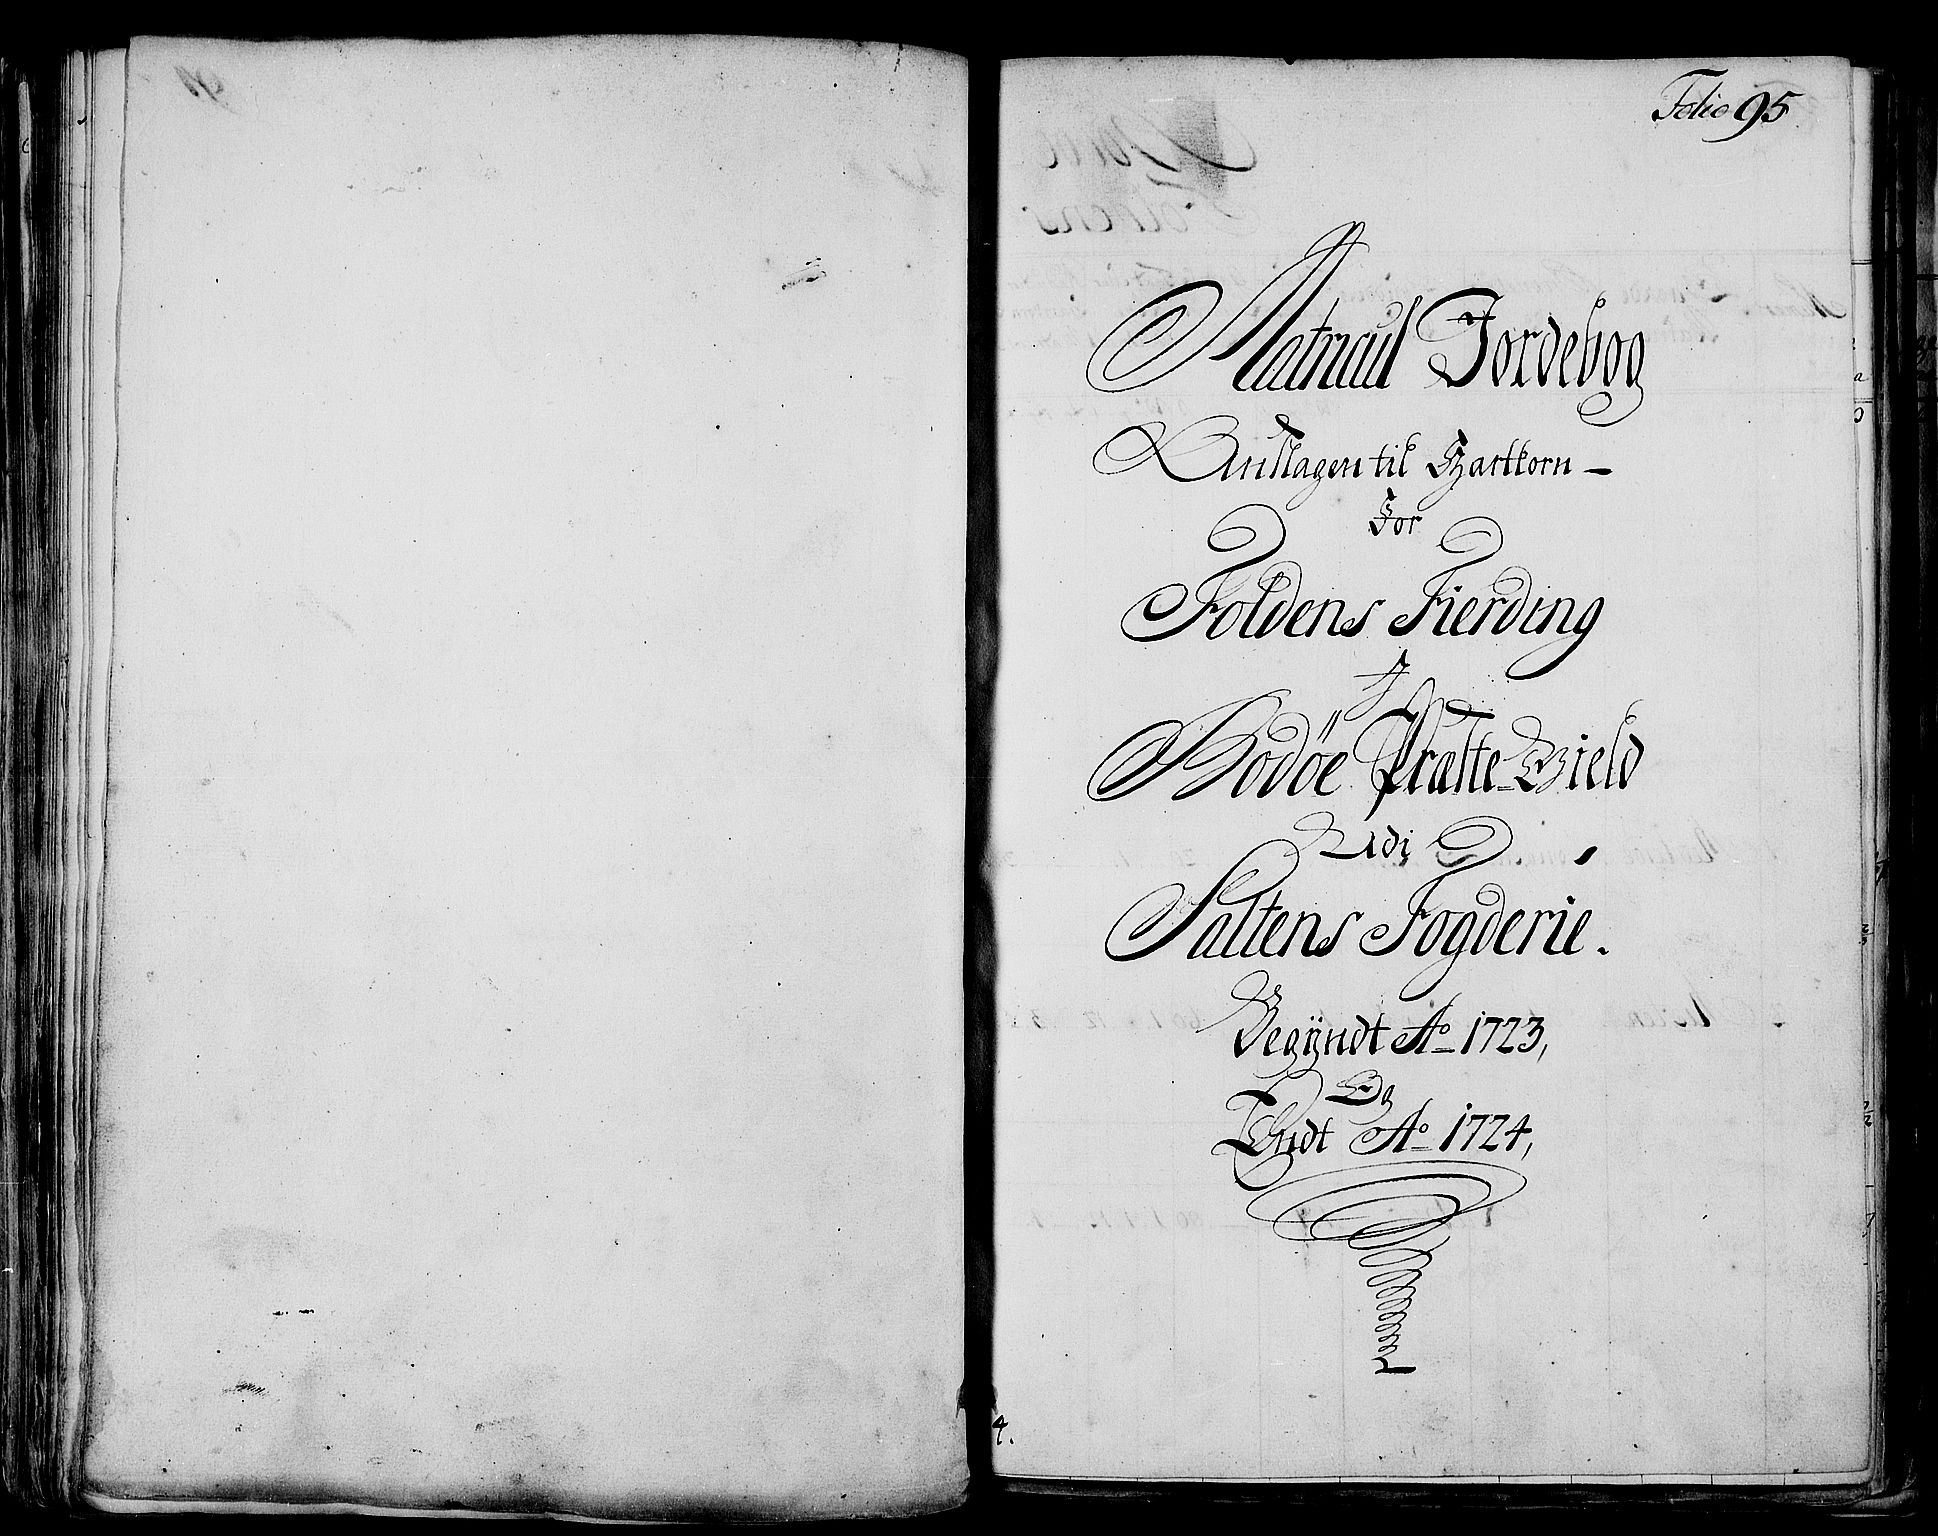 Folio 95
Matricul Jordebog
Andlagen til Hartkorn —
For
Foldens Fierding
I
Bodøe Præste-Gield
Udi
Saltens Fogderie.
Begÿndt Ao 1723,
Og
Endt Ao 1724,
4.